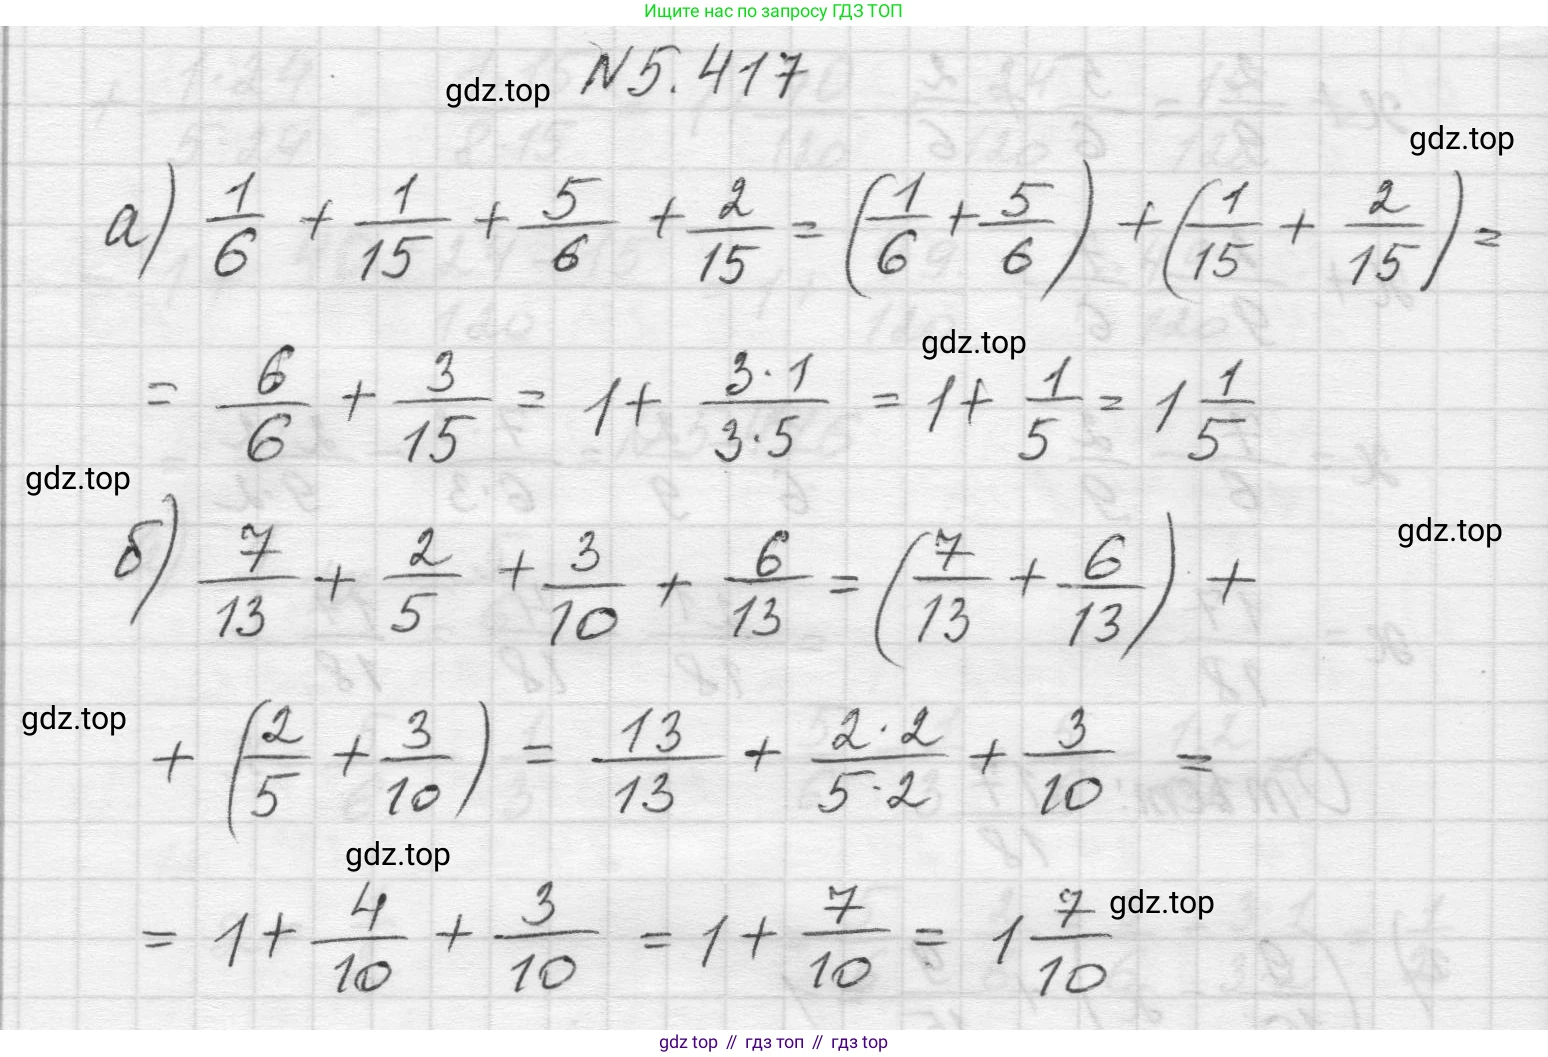 Ищите нас по запросу ГДЗ ТОП
N 5.417
gdz.top
gdz.top
а) 1/6 + 1/15 + 5/6 + 2/15 = (1/6 + 5/6) + (1/15 + 2/15) =
gdz.top
= 6/6 + 3/15 = 1 + 3·1/3·5 = 1 + 1/5 = 1 1/5
gdz.top
gdz.top
б) 7/13 + 2/5 + 3/10 + 6/13 = (7/13 + 6/13) +
gdz.top
+ (2/5 + 3/10) = 13/13 + 2·2/5·2 + 3/10 =
gdz.top
gdz.top
= 1 + 4/10 + 3/10 = 1 + 7/10 = 1 7/10
gdz top // гдз топ // гдз top